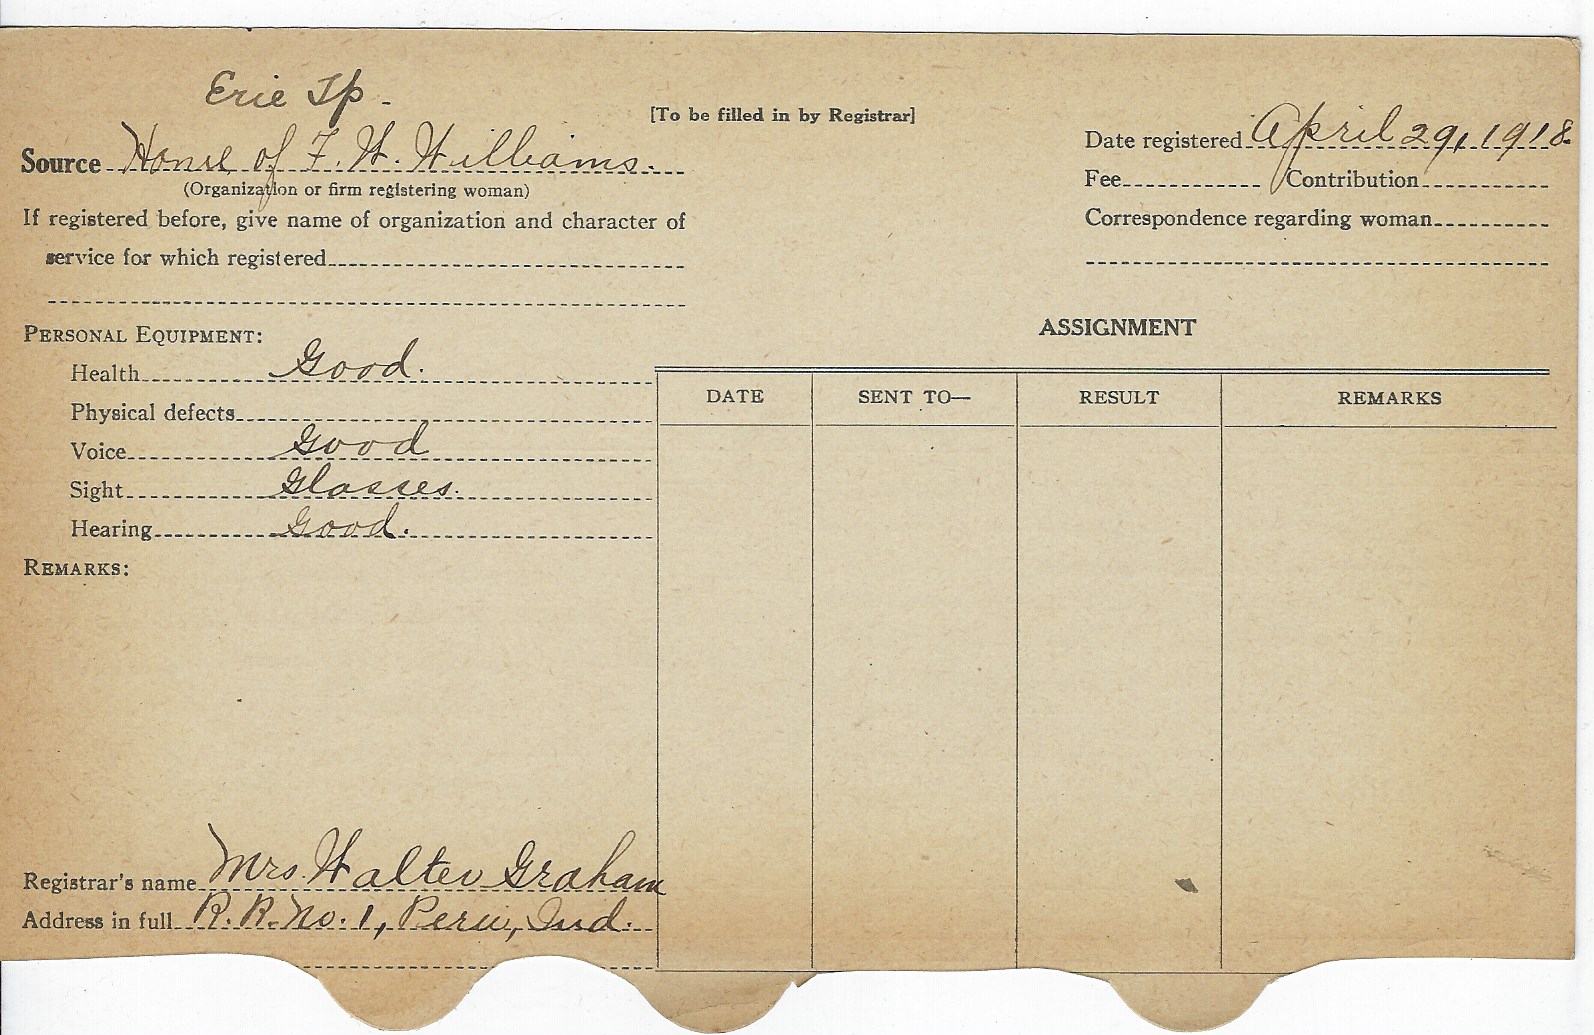 Erie Tp.
[To be filled in by Registrar]
Source House of F. W. Williams.
(Organization or firm registering woman)
If registered before, give name of organization and character of
service for which registered
Date registered April 29, 1918.
Fee Contribution
Correspondence regarding woman
PERSONAL EQUIPMENT:
Health Good.
Physical defects
Voice Good
Sight Glasses.
Hearing Good.
REMARKS:
ASSIGNMENT
DATE SENT TO— RESULT REMARKS
Registrar's name Mrs. Walter Graham
Address in full R. R. No. 1, Peru, Ind.